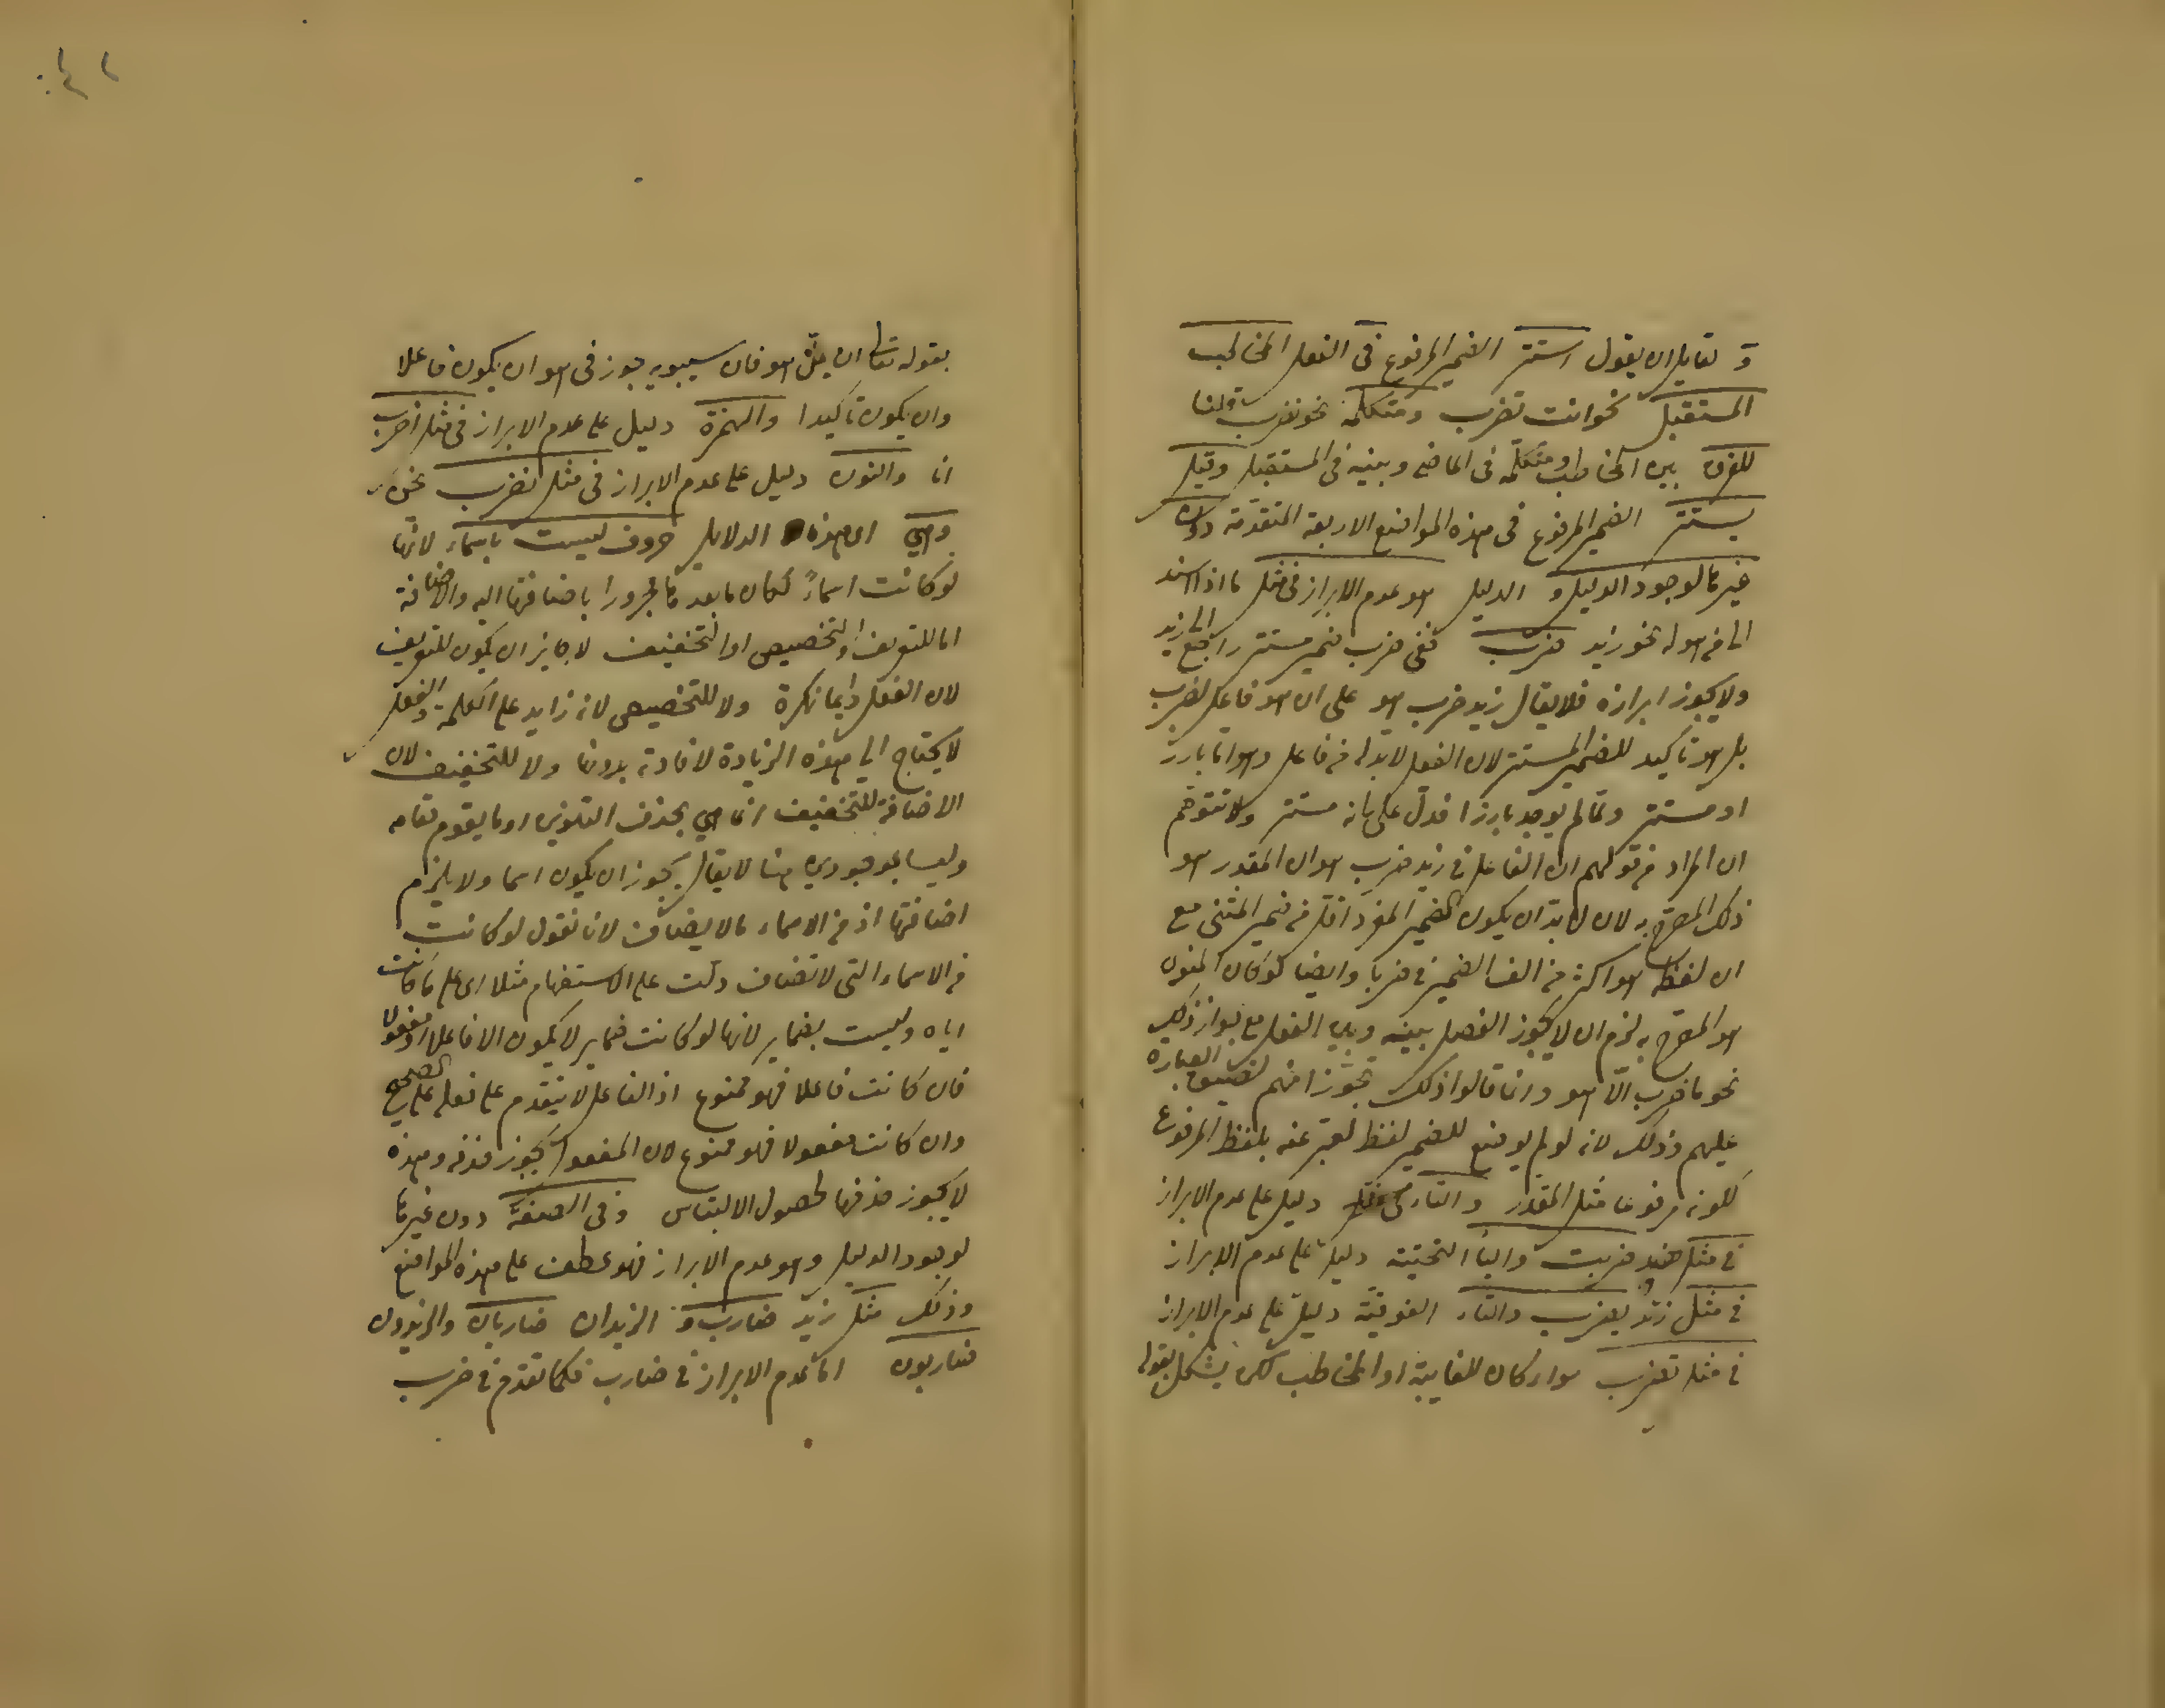 و لقايل ان يقول استتر الضمير المرفوع فى الفعل المخاطب
المستقبل نحو انت تضرب ومتكلمه نحو نضرب قلنا
للفرق بين المخاطب ومتكلمه فى الماضى وبينه فى المستقبل وقيل
يستتر الضمير المرفوع فى هذه المواضع الاربعة المتقدمة دون
غيرها لوجود الدليل و الدليل هو عدم الابراز فى مثل ما اذا اسند
الى هو نحو زيد ضرب ففى ضرب ضمير مستتر راجع الى زيد
ولا يجوز ابرازه فلا يقال زيد ضرب هو على ان هو فاعل لضرب
بل هو تاكيد للضمير المستتر لان الفعل لا بد له من فاعل وهو اما بارز
او مستتر ولما لم يوجد بارزا فدل على انه مستتر ولا تتوهم
ان المراد من قولهم ان الفاعل فى زيد ضرب هو ان المقدر هو
ذلك المصرح به لان لا بد ان يكون الضمير المفرد اقل من ضمير المثنى مع
ان لفظ هو اكثر من الف الضمير فى ضربا وايضا لو كان المنوى
هو المصرح به لزم ان لا يجوز الفصل بينه وبين الفعل مع جواز ذلك
نحو ما ضرب الا هو وانما قالوا ذلك تجوزا منهم لضيق العبارة
عليهم وذلك لانه لو لم يوضع للضمير لفظ لعبر عنه بلفظ المرفوع
لكونه مرفوعا مثل المقدر والتاء فى مثل دليل على عدم الابراز
فى مثل هند ضربت والياء التحتية دليل على عدم الابراز
فى مثل زيد يضرب والتاء الفوقية دليل على عدم الابراز
فى مثل تضرب سواء كان للغايبة او المخاطب لكن يشكل بقوله
بقوله تعالى ان يمل هو فان سيبويه جوز فى هو ان يكون فاعلا
وان يكون تاكيدا والهمزة دليل على عدم الابراز فى مثل اضرب
انا والنون دليل على عدم الابراز فى مثل نضرب نحن
وهى اى هذه الدلايل حروف ليست باسماء لانها
لو كانت اسماءً لكان ما بعدها مجرورا باضافتها اليه والاضافة
اما للتعريف او التخصيص او التخفيف لا جايز ان يكون للتعريف
لان الفعل دايما نكرة ولا للتخصيص لانه زايد على الكلمة والفعل
لا يحتاج الى هذه الزيادة لافادته بدونها ولا للتخفيف لان
الاضافة للتخفيف انما هى بحذف التنوين او ما يقوم مقامه
وليسا بموجودين هنا لا يقال يجوز ان يكون اسما ولا يلزم
اضافتها اذ من الاسماء ما لا يضاف لانا نقول لو كانت
من الاسماء التى لا تضاف دلت على الاستفهام مثلا اى على ما كانت
اياه وليست بضماير لانها لو كانت ضماير لا يكون الا فاعلا او مفعولا
فان كانت فاعلا فهو ممنوع اذ الفاعل لا يتقدم على فعله على الصحيح
وان كانت مفعولا فهو ممنوع لان المفعول يجوز حذفه وهذه
لا يجوز حذفها لحصول الالتباس و فى الصفة دون غيرها
لوجود الدليل وهو عدم الابراز فهو عطف على هذه المواضع
وذلك مثل زيد ضارب و الزيدان ضاربان والزيدون
ضاربون اما عدم الابراز فى ضارب فكما تقدم فى ضرب